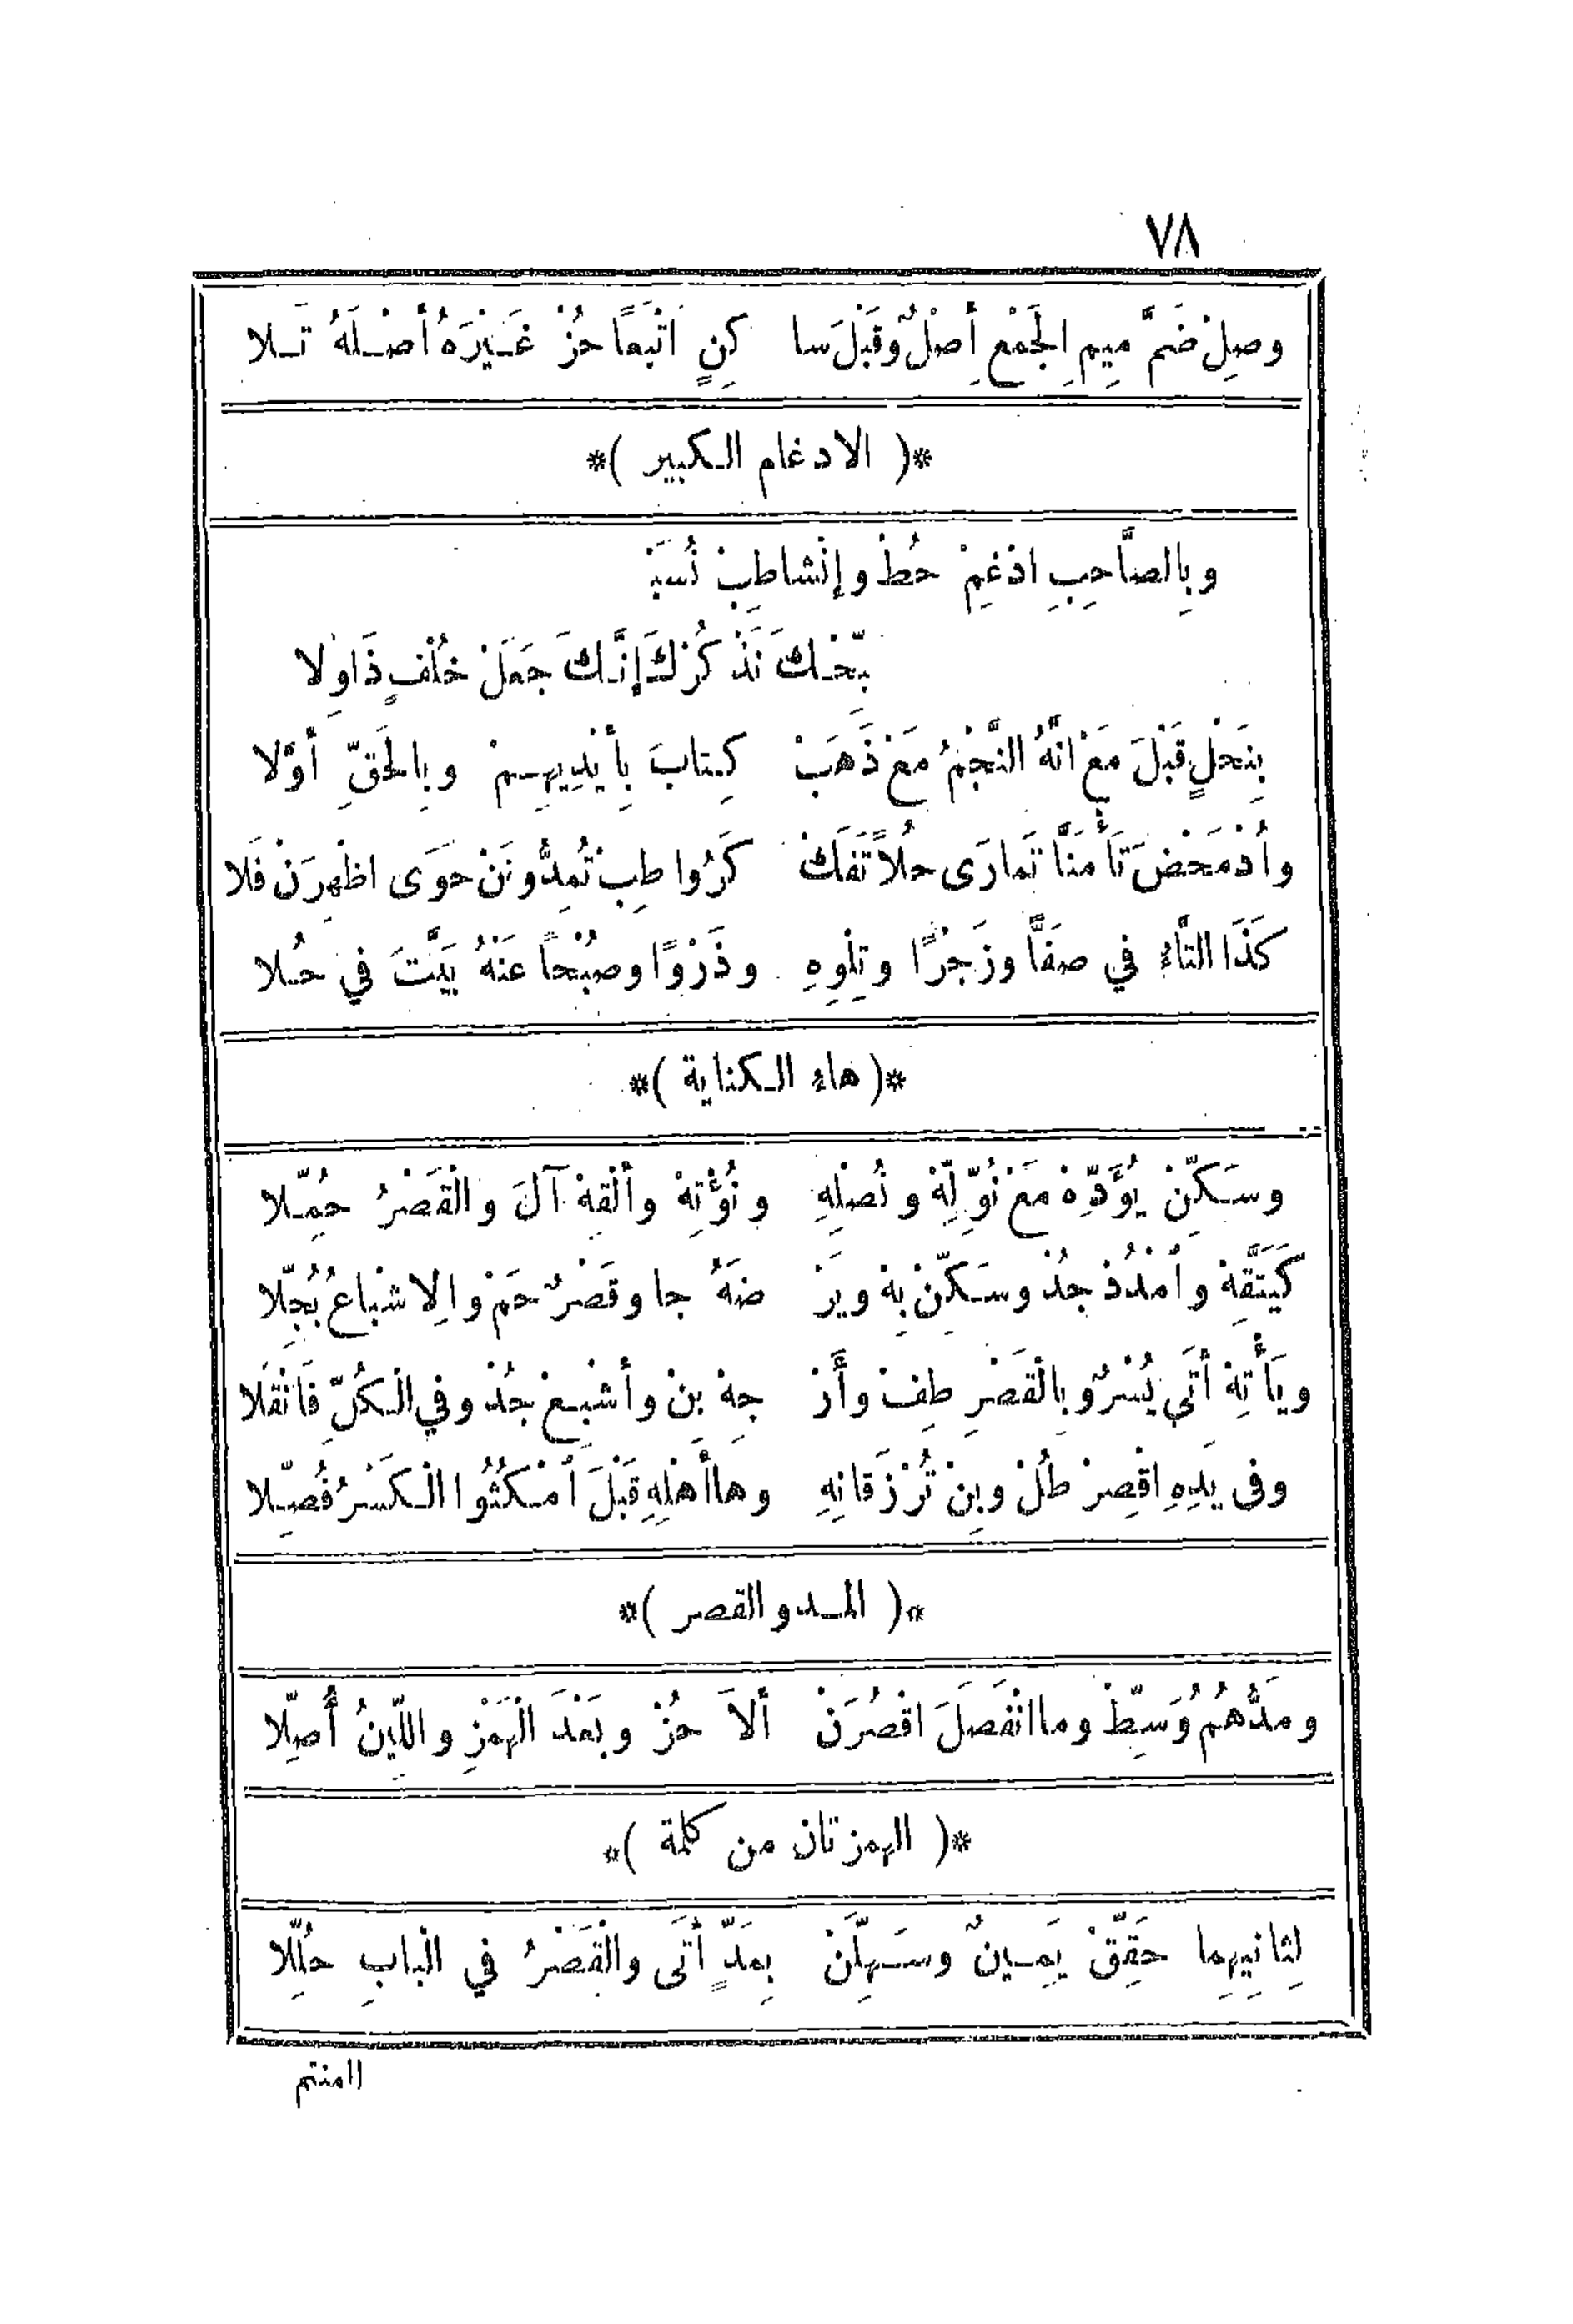 ٧٨
وصِلْ ضَمَّ مِيمِ الجَمْعِ أَصْلٌ وقَبْلَ سا كِنٍ اتْبَعًا حُزْ غَيْرَهُ أَصْلَهُ تَلا
*( الادغام الكبير )*
وبِالصَّاحِبِ ادْغِمْ حُطْ وإنْشاطِبْ نُسَبْ
بِّحَكَ نَذْكُرْكَ إنَّكَ جَعَلَ خُلْفٍ ذَا وِلا
بِنَحْلٍ قَبْلَ مَعْ أنَّهُ النَّجْمُ مَعْ ذَهَبْ كِتابَ بِأَيْدِيهِمْ وبِالحَقِّ أوَّلا
وأُدْ مَحْضَ تَأْمَنَّا تَمارَى حُلاً تَفَكْ كَرُوا طِبْ تُمِدُّونَنْ حَوَى اظْهِرَنْ فَلا
كَذَا التَّاءُ في صَفًّا وزَجْرًا وتِلْوِهِ وذَرْوًا وصُبْحًا عَنْهُ بَيَّتَ في حُلا
*( هاء الكناية )*
وسَكِّنْ يُؤَدِّهْ مَعْ نُوَلِّهْ ونُصْلِهِ ونُؤْتِهْ وأَلْقِهْ آلَ والْقَصْرُ حُمِّلا
كَيَتَّقِهْ وامْدُدْ جُدْ وسَكِّنْ بِهْ ويَرْ ضَهُ جا وقَصْرٌ حَمْ والِاشْباعُ بُجِّلا
ويَأْتِهْ أَتَى يُسْرٌ وبِالْقَصْرِ طِفْ وأَرْ جِهْ بِنْ وأَشْبِعْ جُدْ وفي الْكُلِّ فَانْقُلَا
وفى يَدِهِ اقْصِرْ طُلْ وبِنْ تُرْزَقانِهِ وها أَهْلِهِ قَبْلَ امْكُثُوا الْكَسْرُ فُصِّلا
*( المد والقصر )*
ومَدَّهُمُ وَسِّطْ وما انْفَصَلَ اقْصُرَنْ أَلاَ حُزْ وبَعْدَ الْهَمْزِ واللِّينُ أُصِّلا
*( الهمزتان من كلمة )*
لِثانِيهِما حَقِّقْ يَمِينٌ وسَهِّلَنْ بِمَدٍّ أَتَى والْقَصْرُ في الْبابِ حُلِّلا
اامنتم